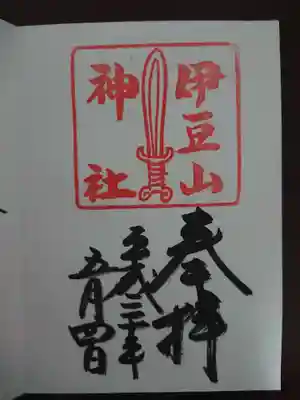 伊豆山
神社
奉拝
平成三十年
五月四日